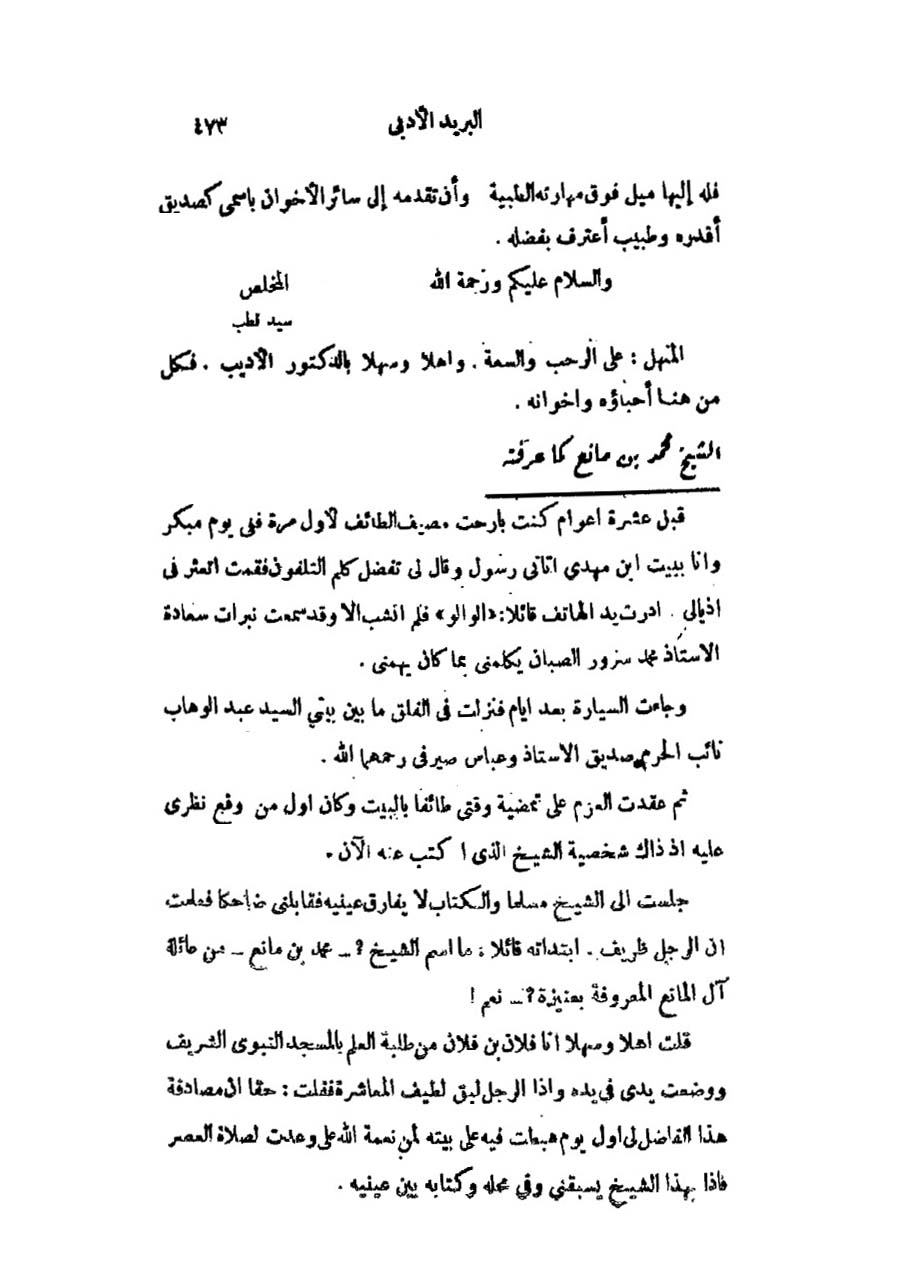 البريد الأدبى ٤٧٣
فله إليها ميل فوق مهارته الطبية وأن تقدمه إلى سائر الأخوان باسمى كصديق
أقدره وطبيب أعترف بفضله .
والسلام عليكم ورحمة الله المخلص
سيد قطب
المنهل : على الرحب والسعة . واهلا وسهلا بالدكتور الأديب . فكل
من هنا أحباؤه واخوانه .
الشيخ محمد بن مانع كما عرفته
قبل عشرة اعوام كنت بارحت مصيف الطائف لأول مرة ففى يوم مبكر
وانا ببيت ابن مهدى اتانى رسول وقال لى تفضل كلم التلفون فقمت اتعثر فى
اذيالى . ادرت يد الهاتف قائلا: «الو الو» فلم انشب الا وقد سمعت نبرات سعادة
الاستاذ محمد سرور الصبان يكلمنى بما كان يهمنى .
وجاءت السيارة بعد ايام فنزلت فى الفلق ما بين بيتي السيد عبد الوهاب
نائب الحرم صديق الاستاذ وعباس صيرفى رحمهما الله .
ثم عقدت العزم على تمضية وقتى طائفا بالبيت وكان اول من وقع نظرى
عليه اذ ذاك شخصية الشيخ الذى اكتب عنه الآن .
جلست الى الشيخ مسلما والكتاب لا يفارق عينيه فقابلنى ضاحكا فعلمت
ان الرجل ظريف . ابتدأته قائلا : ما اسم الشيخ ؟ ... محمد بن مانع - من عائلة
آل المانع المعروفة بعنيزة ؟ ... نعم !
قلت اهلا وسهلا انا فلان بن فلان من طلبة العلم بالمسجد النبوى الشريف
ووضعت يدى فى يده واذا الرجل لبق لطيف المعاشرة فقلت : حقا ان مصادفة
هذا الفاضل لى اول يوم هبطت فيه على بيته لمن نعمة الله على وعدت لصلاة العصر
فاذا بهذا الشيخ يسبقني وفي محله وكتابه بين عينيه .